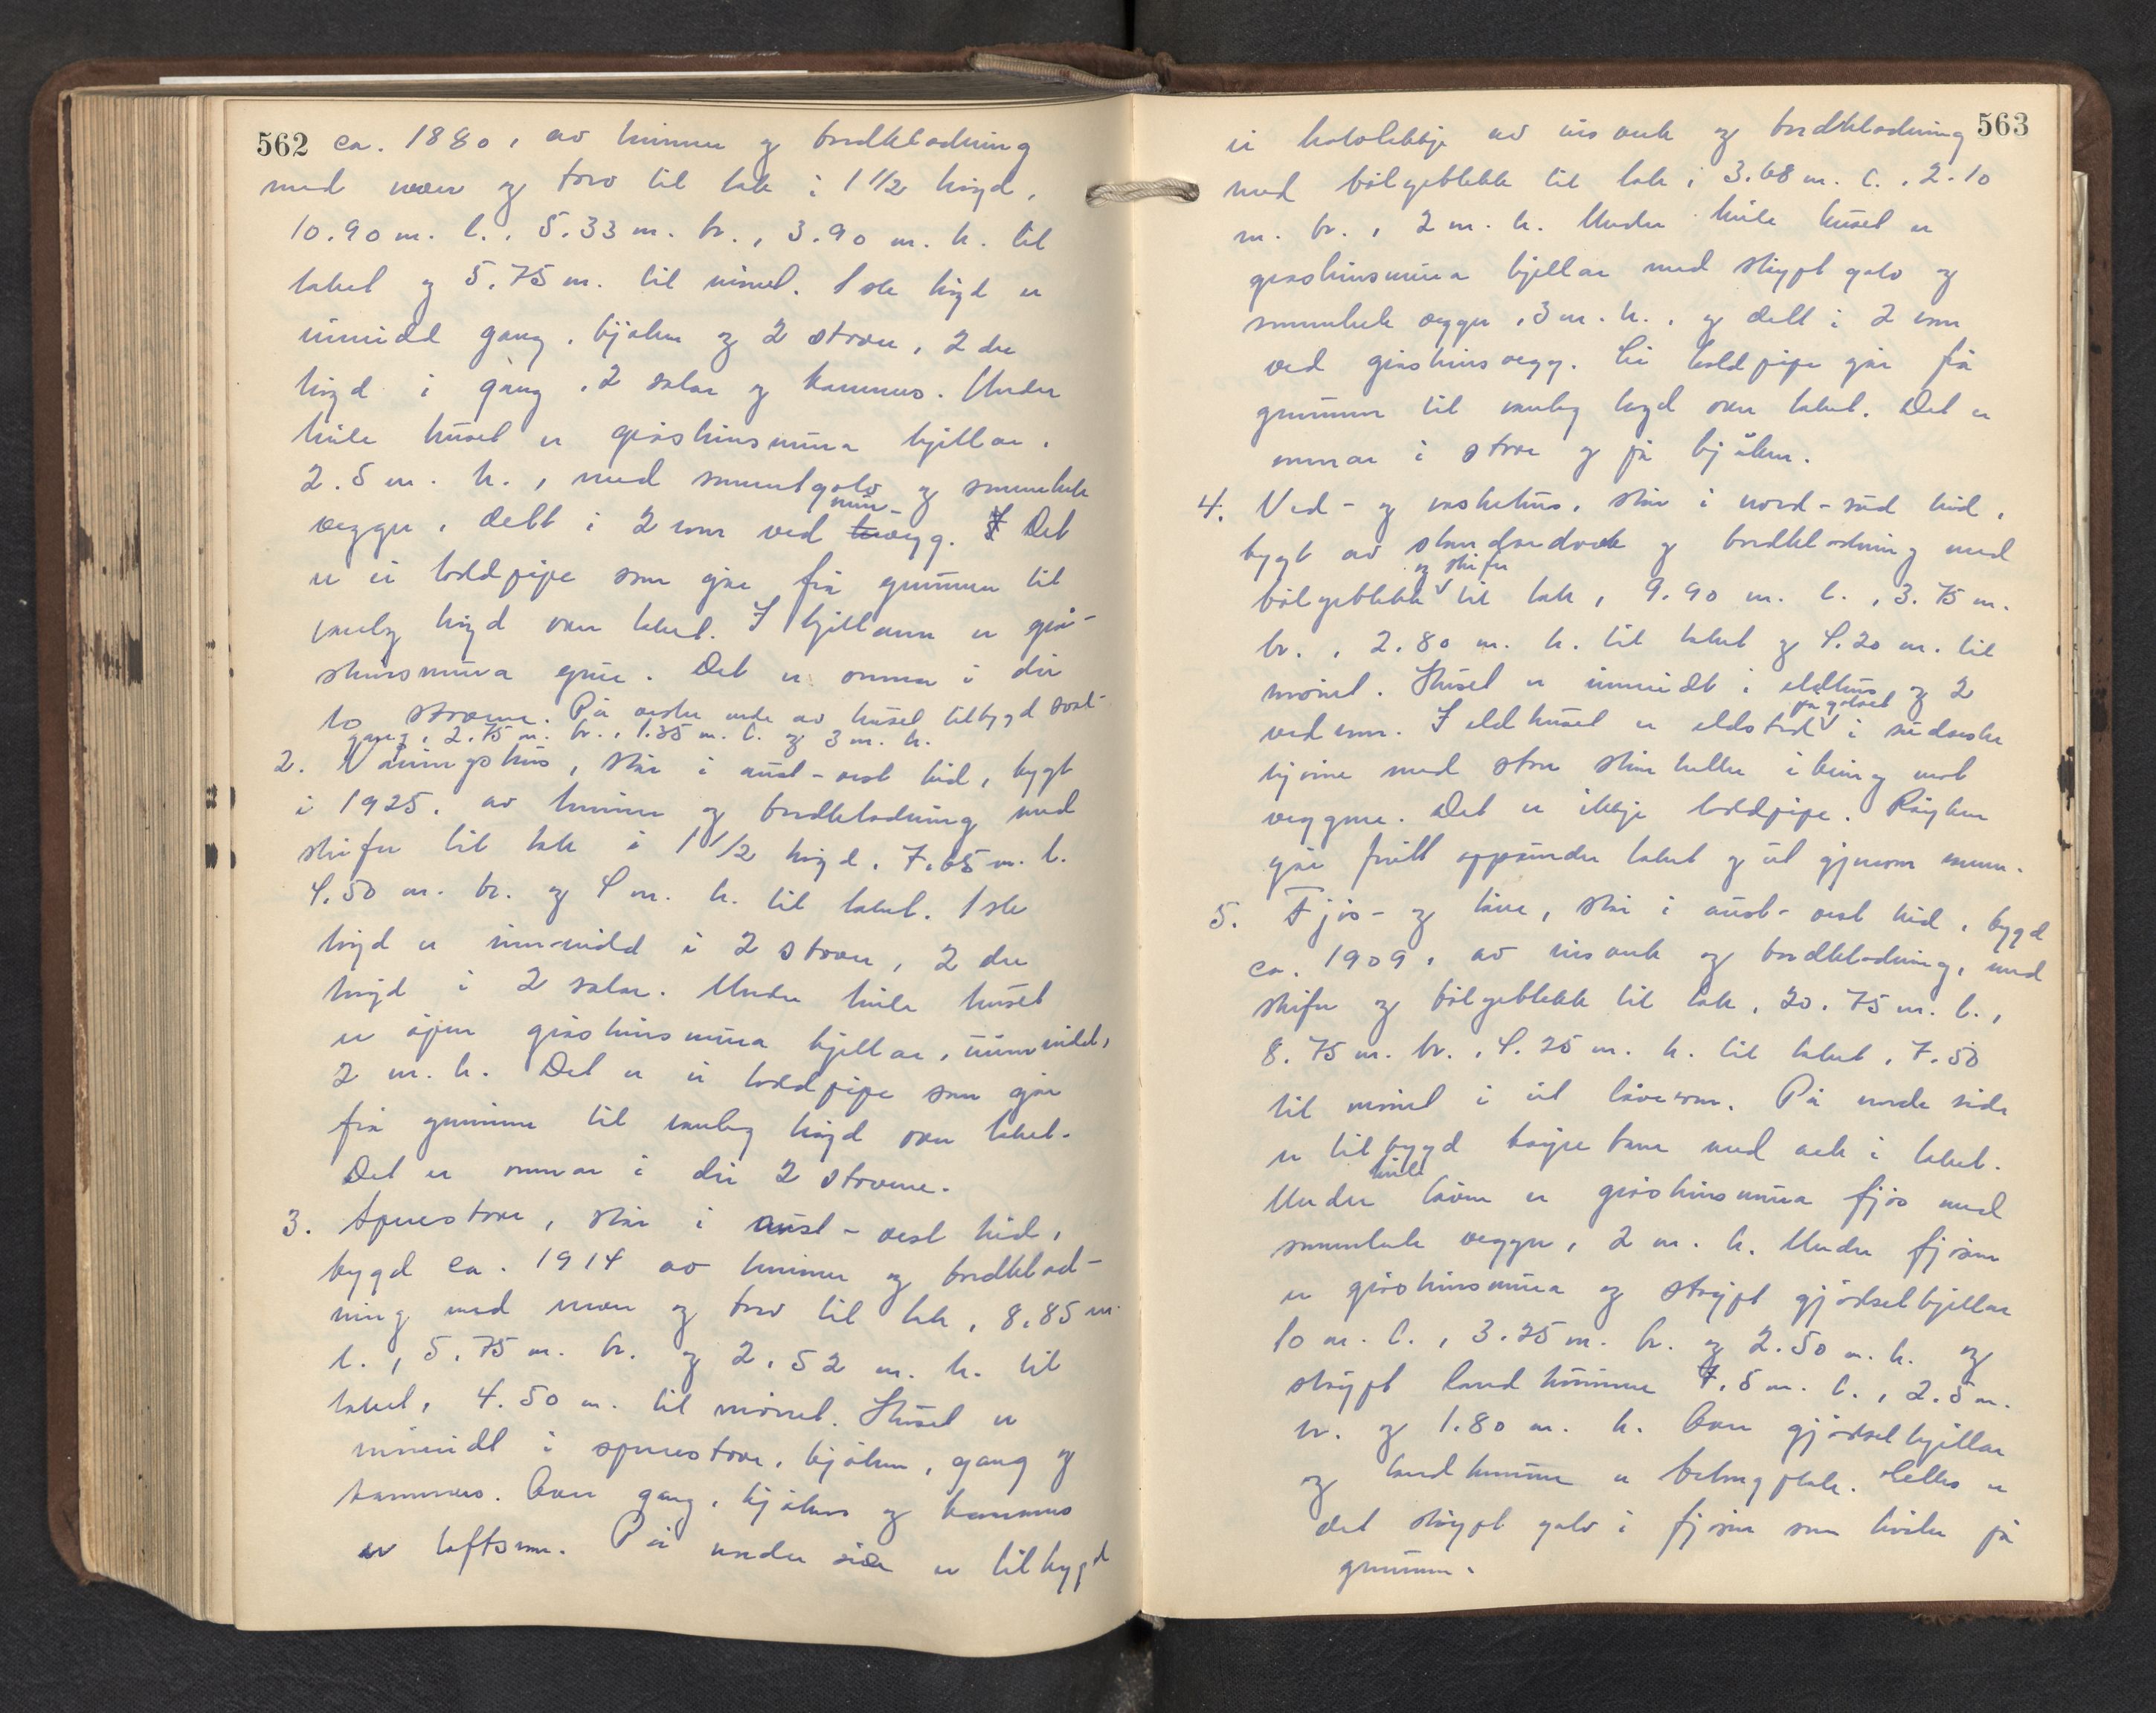 562
ca. 1880, av timmer og bordkledning
med never og torv til tak i 1 1/2 høgd,
10.90 m. l., 5.33 m. br., 3.90 m. h. til
taket og 5.75 m. til mønet. 1ste høgd er
innreidd gang, kjøken og 2 stover, 2dre
høgd i gang, 2 salar og kammers. Under
heile huset er gråsteinsmura kjellar,
2.5 m. h., med sementgolv og sementerte
vegger, delt i 2 rom ved mur-vegg. Det
er ei koldpipe som går frå grunnen til
vanleg høgd over taket. I kjellaren er grå-
steinsmura grue. Det er omnar i dei
to stovene. På vestre ende av huset tilbygd sval-
gang, 2.75 m. br., 1.35 m. l. og 3 m. h.
2. Våningshus, står i aust-vest leid, bygt
i 1925, av timmer og bordkledning med
skifer til tak i 1 1/2 høgd, 7.65 m. l.
4.50 m. br. og 4 m. h. til taket. 1ste
høgd er innreidd i 2 stover, 2dre
høgd i 2 salar. Under heile huset
er open gråsteinsmura kjellar, uinnreidd,
2 m. h. Det er ei koldpipe som går
frå grunnen til vanleg høgd over taket.
Det er omnar i dei 2 stovene.
3. Sperrestove, står i aust-vest leid,
bygd ca. 1914 av timmer og bordkled-
ning med never og torv til tak, 8.85 m.
l., 5.75 m. br. og 2.52 m. h. til
taket, 4.50 m. til mønet. Huset er
innreidt i sperrestove, kjøken, gang og
kammers. Over gang, kjøken og kammers
er loftsrom. På nordre side er tilbygd
563
ei med bordkledning
med bølgeblekk til tak, 3.68 m. l., 2.10
m. br., 2 m. h. Under heile huset er
gråsteinsmura kjellar med støypt golv og
sementerte vegger, 3 m. h., og delt i 2 rom
ved gråsteinsvegg. Ei koldpipe går frå
grunnen til vanleg høgd over taket. Det er
omnar i stove og på kjøken.
4. Ved- og vaskehus, står i nord-sud leid,
bygt av standardverk og bordkledning med
bølgeblekk og skifer til tak, 9.90 m. l., 3.75 m.
br., 2.80 m. h. til taket og 4.20 m. til
mønet. Huset er innreidt i eldhus og 2
vedrom. I eldhuset er eldsted på golvet i sudvestre
hjørne med store steinheller ikring mot
veggene. Det er ikkje koldpipe. Røyken
går fritt oppunder taket og ut gjenom
5. Fjøs- og løe, står i aust-vest leid, bygd
ca. 1909, av og bordkledning, med
skifer og bølgeblekk til tak, 20.75 m. l.,
8.75 m. br., 4.25 m. h. til taket, 7.50
til mønet i eit løerom. På nordre side
er tilbygd køyrebru med ark i taket.
Under heile løene er gråsteinsmura fjøs med
sementerte vegger, 2 m. h. Under fjøsen
er gråsteinsmura og støypt gjødselkjellar
10 m. l., 3.25 m. br. og 2.50 m. h. og
støypt landkumme 7.5 m. l., 2.5 m.
br. og 1.80 m. h. Over gjødselkjellar
og landkumme er betongplate. Elles er
det støypt golv i fjøsen som kviler på
grunnen.